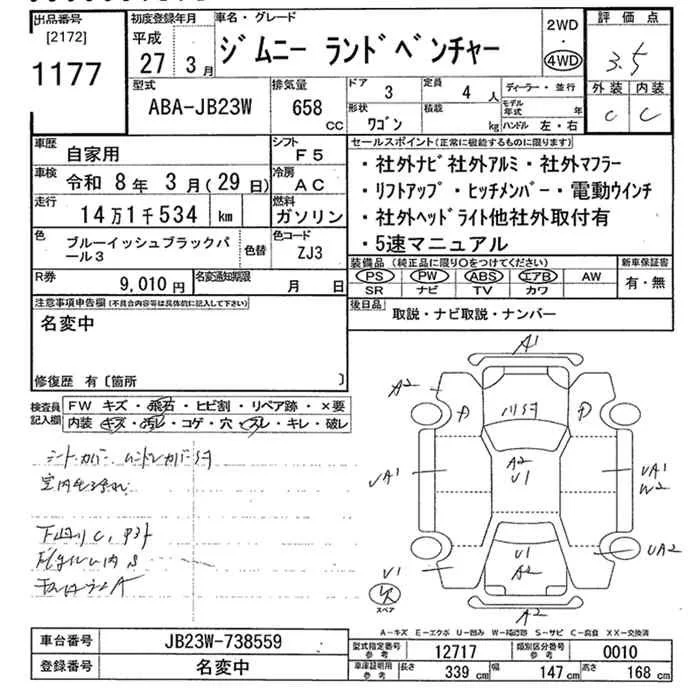 出品番号
[2172]
1177
初度登録年月
平成
27年 3月
車名・グレード
ジムニー ランドベンチャー
2WD
・
4WD
評価点
3.5
外装 内装
C C
型式
ABA-JB23W
排気量
658
CC
ドア
3
定員
4 人
形状
ワゴン
積載
kg
ディーラー・並行
モデル年式 年
ハンドル 左・右
車歴
自家用
シフト
F5
車検
令和 8年 3月(29日)
冷房
AC
走行
14万1千534 km
燃料
ガソリン
色
ブルーイッシュブラックパール3
色替
色コード
ZJ3
R券
9,010円
名変通知期限
月 日
セールスポイント(正常に機能するものに限ります)
・社外ナビ社外アルミ・社外マフラー
・リフトアップ・ヒッチメンバー・電動ウインチ
・社外ヘッドライト他社外取付有
・5速マニュアル
装備品(純正品に限り○をつけてください)
新車保証書
PS PW ABS エアB AW
SR ナビ TV カワ
有・無
後日品
取説・ナビ取説・ナンバー
注意事項申告欄(不具合内容等は具体的に記入して下さい)
名変中
修復歴 有〔箇所 〕
検査員記入欄
FW キズ・飛石・ヒビ割・リペア跡・×要
内装 キズ・汚レ・コゲ・穴・スレ・キレ・破レ
A1
A2
A2
U1
UA1
UA1
W2
U1
A2
UA2
U1
欠
スペア
A2
A-キズ E-エクボ U-凹み W-補修跡 S-サビ C-腐食 XX-交換済
車台番号
JB23W-738559
登録番号
名変中
型式指定番号
参考
12717
類別区分番号
参考
0010
車庫証明用
参考
長さ 339 cm 幅 147 cm 高さ 168 cm